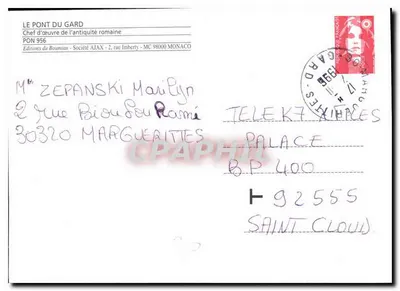 LE PONT DU GARD
Chef d'œuvre de l'antiquité romaine
PON 956
Editions de Roumian - Société AJAX - 2, rue Imberty - MC 98000 MONACO
ZEPANSKI Marilyn
2 rue
30320 MARGUERITTES
TELE K7
PALACE
B.P 400
T 92555
SAINT CLOUD
CPAPHIL
GARD